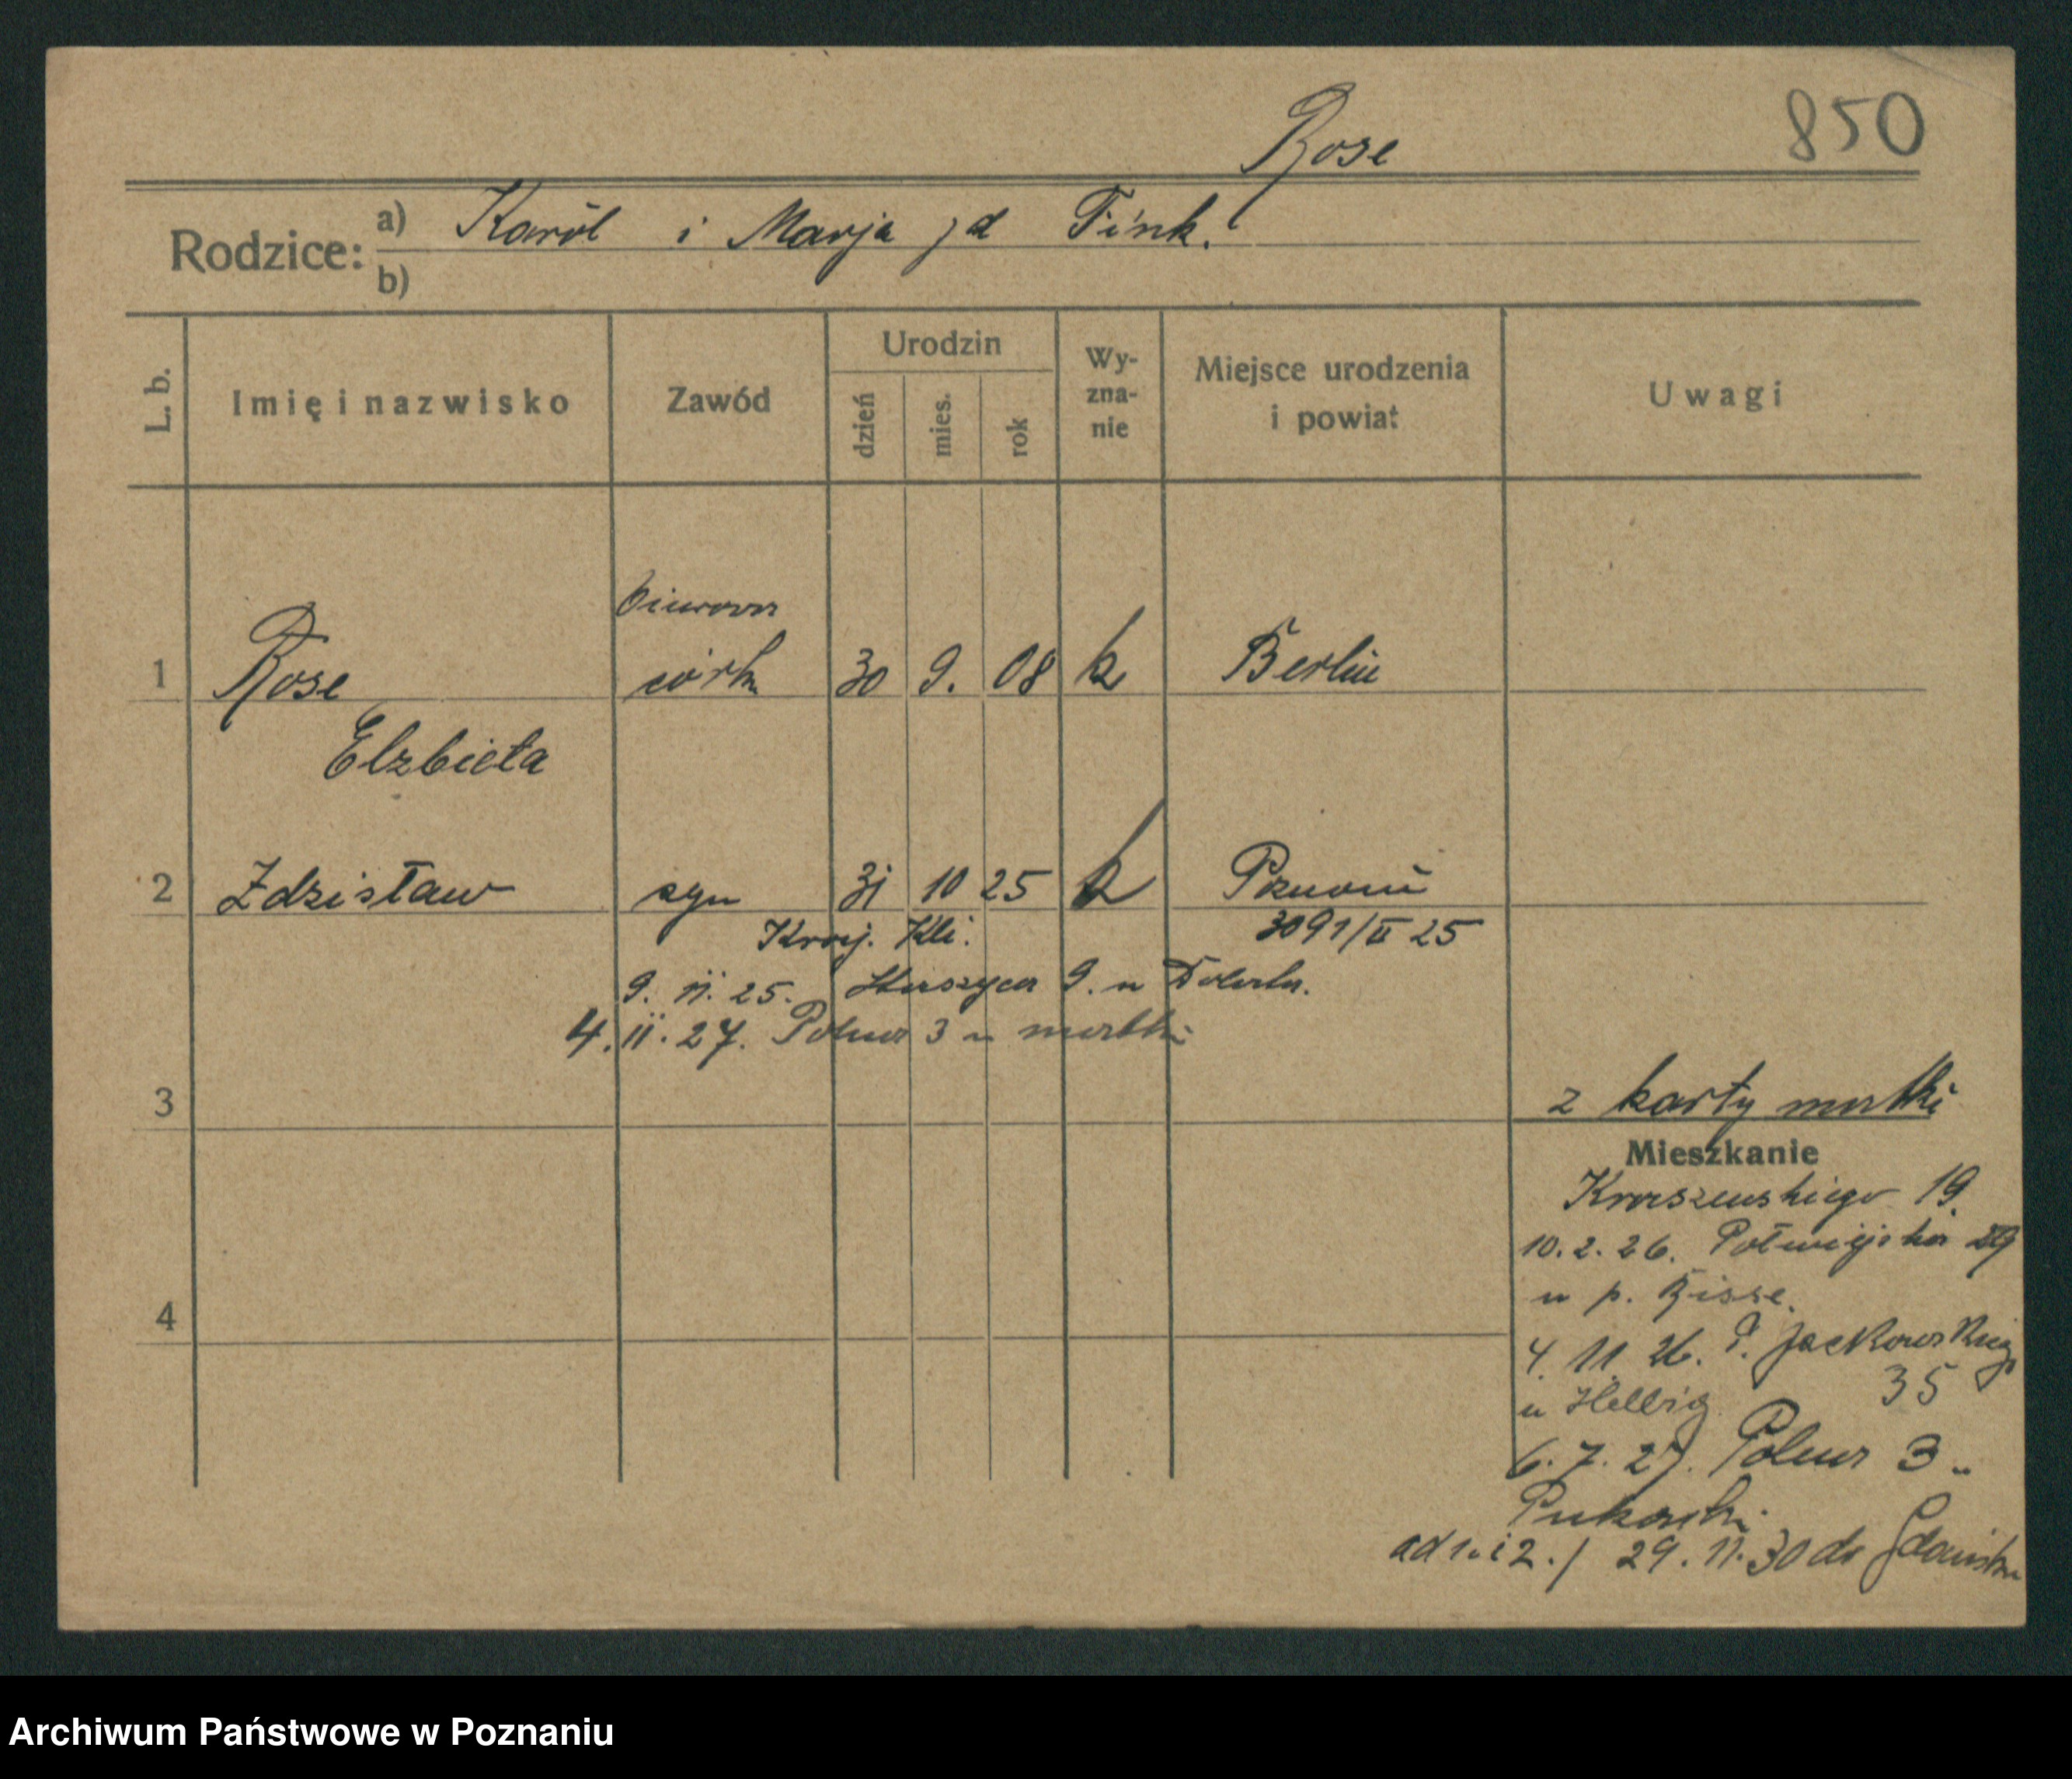 850
Rose
Rodzice: a) Karól i Marja zd Fink.
b)
L. b. Imię i nazwisko Zawód Urodzin dzień mies. rok Wy-zna-nie Miejsce urodzenia i powiat Uwagi
biurowa
1 Rose córka 30 9. 08 k Berlin
Elzbieta
2 Zdzisław syn 31 10 25 k Poznań
Kraj. Kli. 3091/II 25
9. 11. 25. 9. u
4. 11. 27. Polna 3 u matki
3 z karty matki
Mieszkanie
Kraszewskiego 19.
10. 2. 26. Półwiejska 29
u p. Risse.
4
4. 11 26. P. Jackowskiego
u Helbig 35
6. 7. 27. Polna 3 u
ad 1. i 2./ 29. 11. 30 do Gdańska
Archiwum Państwowe w Poznaniu